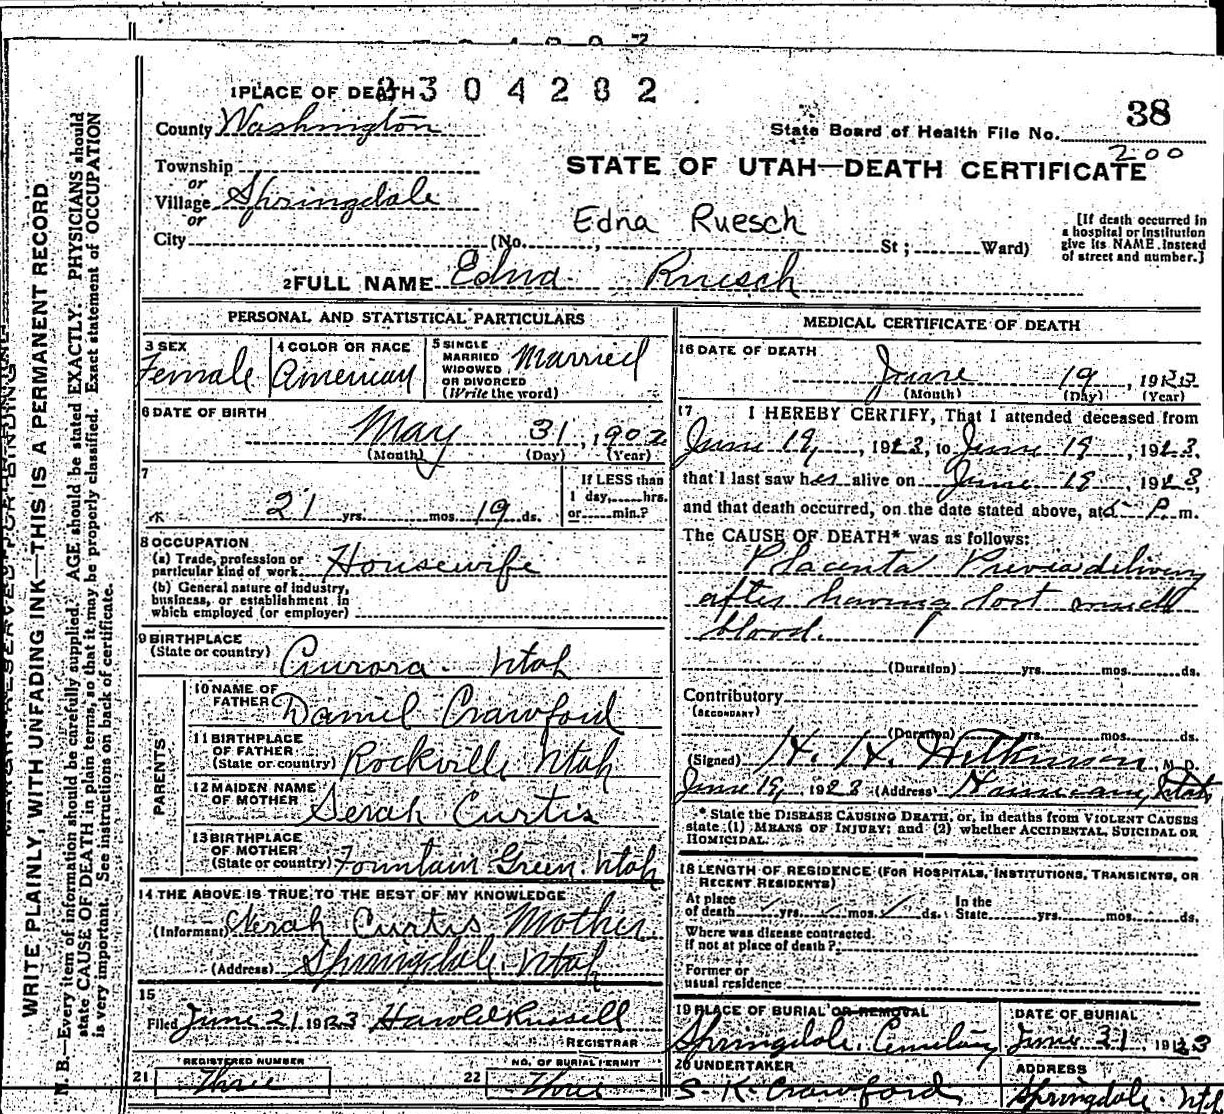 2304202
1 PLACE OF DEATH
County Washington
State Board of Health File No. 38
200
Township
or
STATE OF UTAH—DEATH CERTIFICATE
Village Springdale
or
Edna Ruesch
City (No. , St ; Ward)
[If death occurred in
a hospital or institution
give its NAME instead
of street and number.]
2 FULL NAME Edna Ruesch
PERSONAL AND STATISTICAL PARTICULARS
3 SEX
Female
4 COLOR OR RACE
American
5 SINGLE
MARRIED
WIDOWED
OR DIVORCED
(Write the word)
Married
6 DATE OF BIRTH
May 31, 1902
(Month) (Day) (Year)
7
21 yrs. mos. 19 ds.
If LESS than
1 day, hrs.
or min.?
8 OCCUPATION
(a) Trade, profession or
particular kind of work Housewife
(b) General nature of industry,
business, or establishment in
which employed (or employer)
9 BIRTHPLACE
(State or country) Aurora. Utah
PARENTS
10 NAME OF
FATHER Daniel Crawford
11 BIRTHPLACE
OF FATHER
(State or country) Rockville Utah
12 MAIDEN NAME
OF MOTHER Serah Curtis
13 BIRTHPLACE
OF MOTHER
(State or country) Fountain Green. Utah
14 THE ABOVE IS TRUE TO THE BEST OF MY KNOWLEDGE
(Informant) Serah Curtis Mother
(Address) Springdale. Utah
15
Filed June 21 1923 Harold Russell
REGISTRAR
REGISTERED NUMBER
21 Three
NO. OF BURIAL PERMIT
22 Three
MEDICAL CERTIFICATE OF DEATH
16 DATE OF DEATH
June 19, 1923
(Month) (Day) (Year)
17 I HEREBY CERTIFY, That I attended deceased from
June 19, 1923, to June 19, 1923.
that I last saw her alive on June 19, 1923,
and that death occurred, on the date stated above, at 5 P. m.
The CAUSE OF DEATH* was as follows:
Placenta Previa delivery
after having lost much
blood.
(Duration) yrs. mos. ds.
Contributory
(SECONDARY)
(Duration) yrs. mos. ds.
(Signed) H. H. Wilkinson, M. D.
June 19, 1923 (Address) Utah
* State the DISEASE CAUSING DEATH, or, in deaths from VIOLENT CAUSES
state (1) MEANS OF INJURY; and (2) whether ACCIDENTAL, SUICIDAL OR
HOMICIDAL.
18 LENGTH OF RESIDENCE (FOR HOSPITALS, INSTITUTIONS, TRANSIENTS, OR
RECENT RESIDENTS)
At place
of death yrs. mos. ds.
In the
State yrs. mos. ds.
Where was disease contracted
if not at place of death?
Former or
usual residence
19 PLACE OF BURIAL OR REMOVAL
Springdale. Cemetary
DATE OF BURIAL
June 21 1923
20 UNDERTAKER
S. K. Crawford
ADDRESS
Springdale. Utah
WRITE PLAINLY, WITH UNFADING INK—THIS IS A PERMANENT RECORD
N. B.—Every item of information should be carefully supplied. AGE should be stated EXACTLY. PHYSICIANS should
state CAUSE OF DEATH in plain terms, so that it may be properly classified. Exact statement of OCCUPATION
is very important. See instructions on back of certificate.